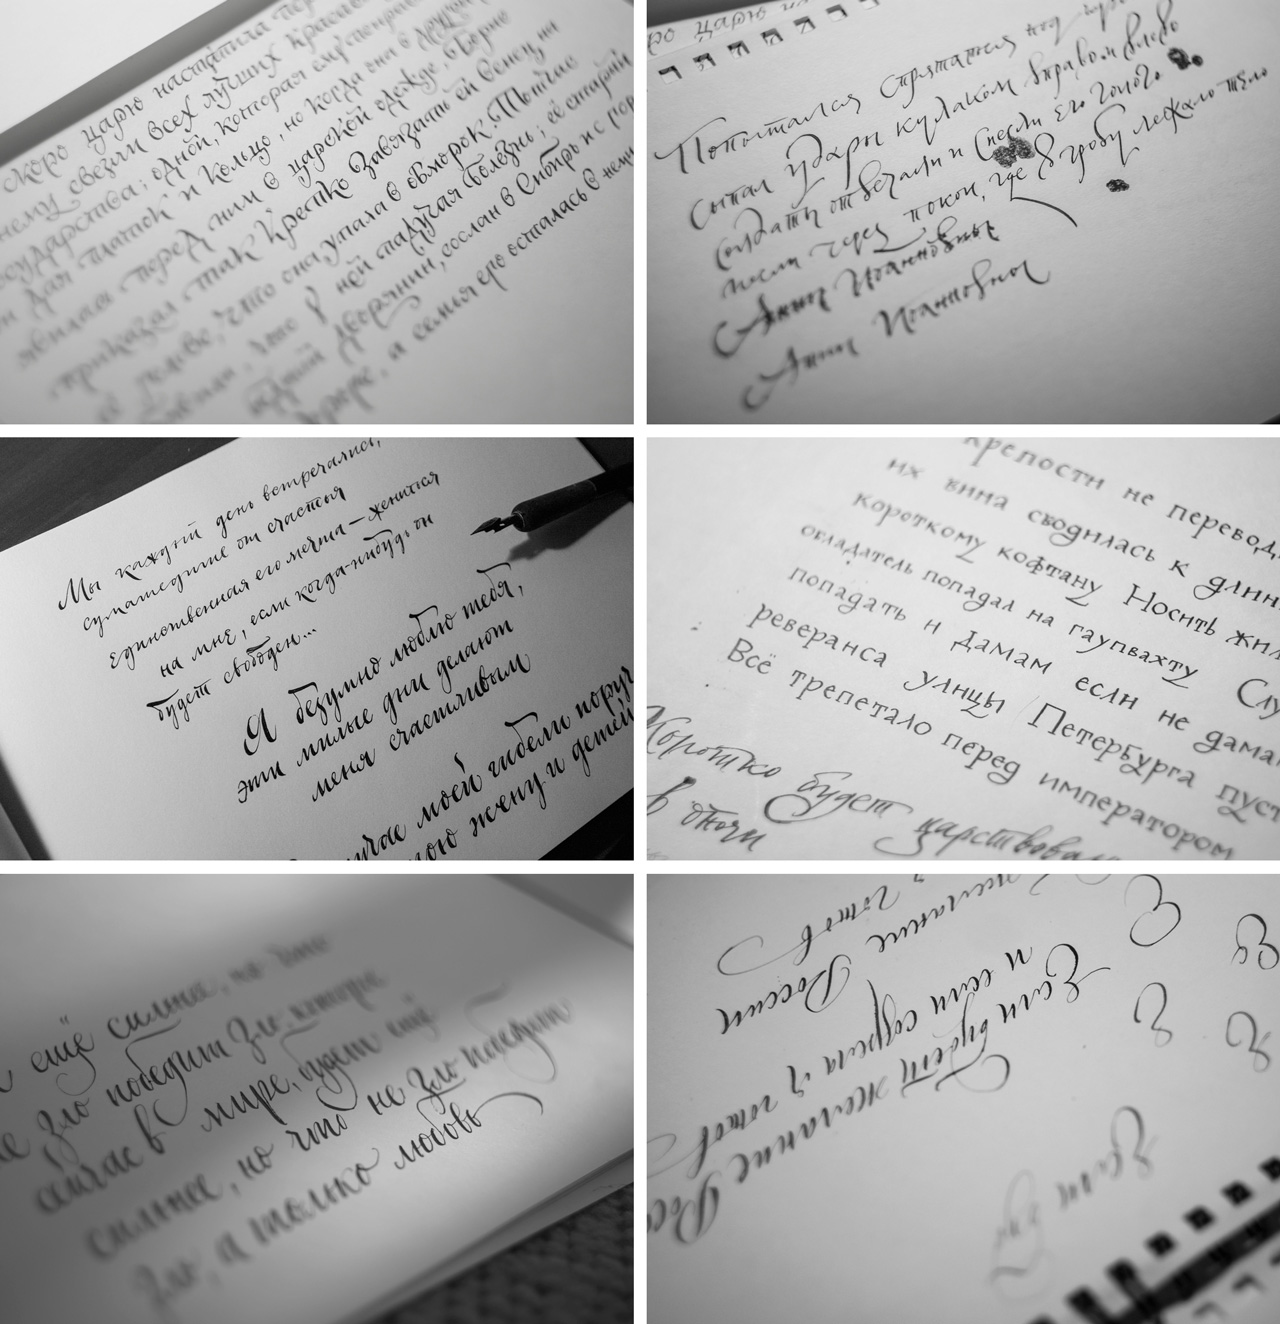 скоро царю настатила пор
нему свезли всех лучших краса
государства; одной, которая ему понрави
он дал платок и кольцо, но когда она в другой
явилась перед ним в царской одежде, Борис
приказал так крепко завязать ей венец, на
что она упала в обморок. Тотчас
что у ней падучая болезнь; её старый
дворянин, сослан в Сибирь с
а семья его осталась в
Попытался спрятаться под
сыпал удары кулаком вправо и влево
солдаты отвечали и Снесли его голого
несли через покои, где в гробу лежало тело
Анны Иоанновны
Анны Иоанновны
Мы каждый день встречались,
сумасшедшие от счастья
Единственная его мечта — жениться
на мне, если когда-нибудь он
будет свободен...
Я безумно люблю тебя,
эти милые дни делают
меня счастливым
случае моей гибели поруч
мою жену и детей
крепости не перевод
их вина сводилась к длин
короткому кофтану Носить жил
обладатель попадал на гаупвахту Слу
попадать и дамам если не дама
реверанса улицы Петербурга пуст
Всё трепетало перед императором
Коротко будет царствован
в оточи
ещё сильнее, но
не зло победит зло, которое
сейчас в мире, будет ещё
сильнее, но что не зло победит
зло, а только любовь
желание России
я готов
Если будет желание Рос
и если созрела я готов
З
З
З
З
Если буд